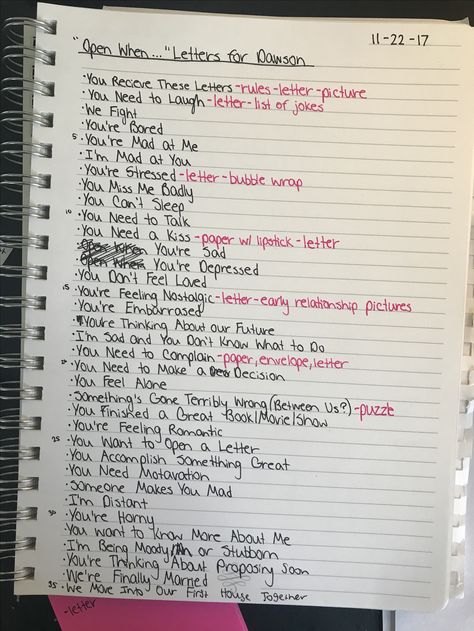 11-22-17
"Open When..." Letters for Dawson
·You Recieve These Letters -rules-letter-picture
·You Need to Laugh -letter-list of jokes
·We Fight
·You're Bored
5 ·You're Mad at Me
·I'm Mad at You
·You're Stressed -letter-bubble wrap
·You Miss Me Badly
·You Can't Sleep
10 ·You Need to Talk
·You Need a Kiss -paper w/ lipstick -letter
·Open When You're Sad
·Open When You're Depressed
·You Don't Feel Loved
15 ·You're Feeling Nostalgic -letter-early relationship pictures
·You're Embarrased
·You're Thinking About our Future
·I'm Sad and You Don't Know What to Do
·You Need to Complain -paper, envelope, letter
20 ·You Need to Make a Decision
·You Feel Alone
·Something's Gone Terribly Wrong (Between Us?) -puzzle
·You Finished a Great Book/Movie/Show
·You're Feeling Romantic
25 ·You Want to Open a Letter
·You Accomplish Something Great
·You Need Motavation
·Someone Makes You Mad
·I'm Distant
30 ·You're Horny
·You want to Know More About Me
·I'm Being Moody or Stubborn
·You're Thinking About Proposing Soon
·We're Finally Married
35 ·We Move Into Our First House Together
-letter